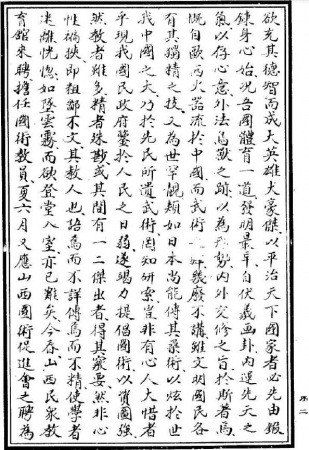 欲充其德智而成大英雄大豪傑以平治天下國家者必先由鍛
鍊身心始況吾國體育一道發明最早自伏羲畫卦内運先天之
氣以存心意外法鳥獸之跡以為形勢内外交修之旨於斯著焉
慨自歐西火器流於中國而武術一幾廢不講雖文明國民各
有其獨精之技又為世罕覯類如日本尚能傳其柔術以炫於世
我中國之大乃於先民所遺武術罔知研索豈非有心人大惜者
乎現我國民政府鑒於人民之日弱遂竭力提倡國術以資圖強
然教者雖多精者殊尠或其間有一二傑出者得其竅要然非心
性褊狹即粗鄙不文其教人也語焉而不詳傳焉而不精使學者
迷離恍惚如墜雲霧而欲登堂入室亦已難矣今春山西民眾教
育館來聘擔任國術教員夏六月又應山西國術促進會之聘為
序二